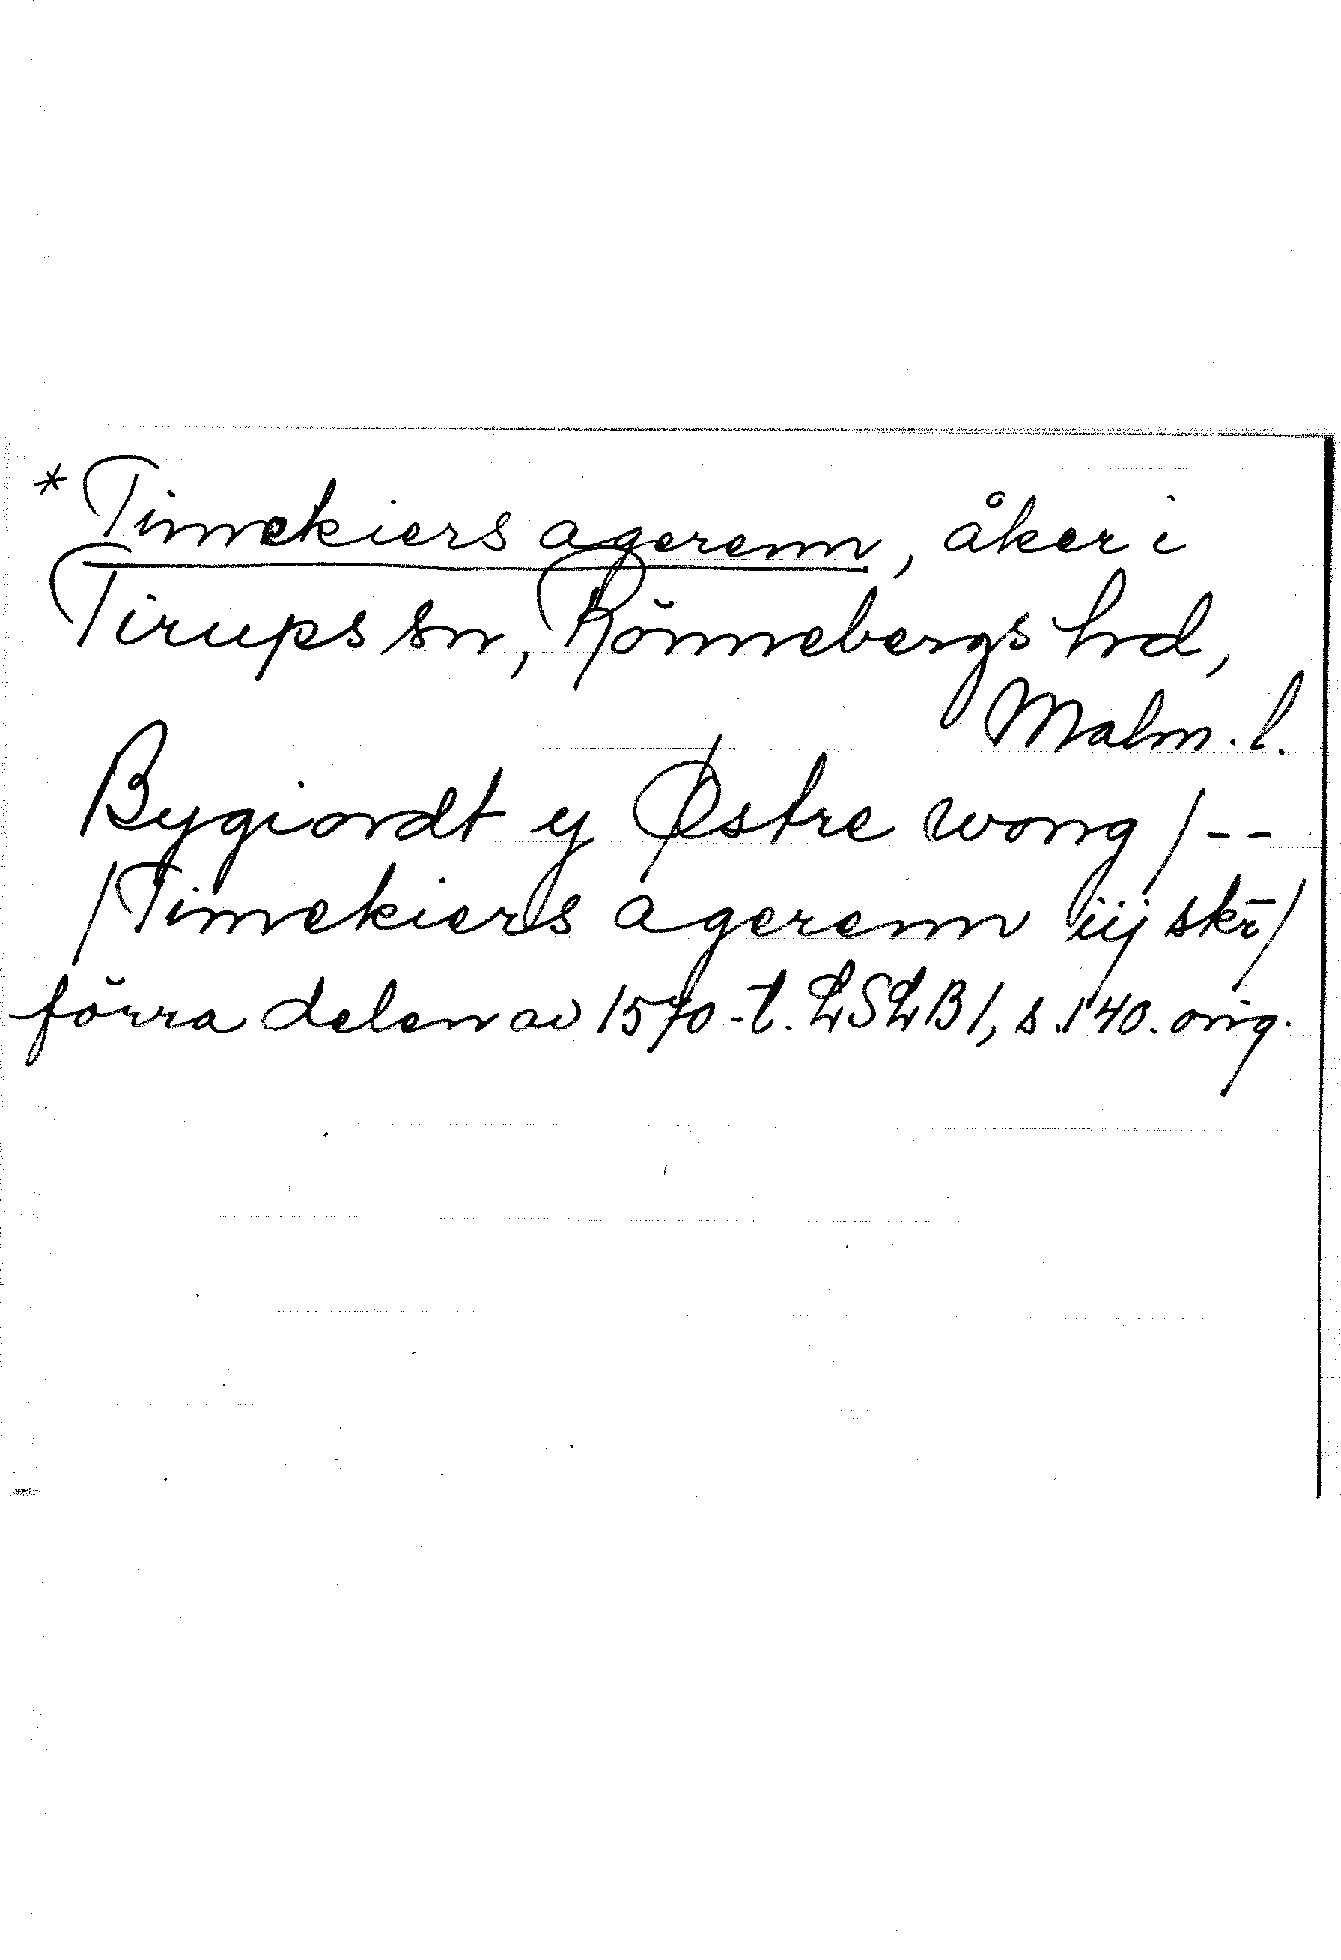 *Timekiers agerenn, åker i
Tirups sn, Rönnebergs hd,
Malm. l.
Bygiordt y Østre wong /--
/Timekiers agerenn iij skr̄/
förra delen av 1570-t. LSLB 1, s. 140. orig.